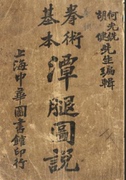 胡健
何光銑先生編輯
拳術
基本
潭腿圖說
上海中華圖書館印行